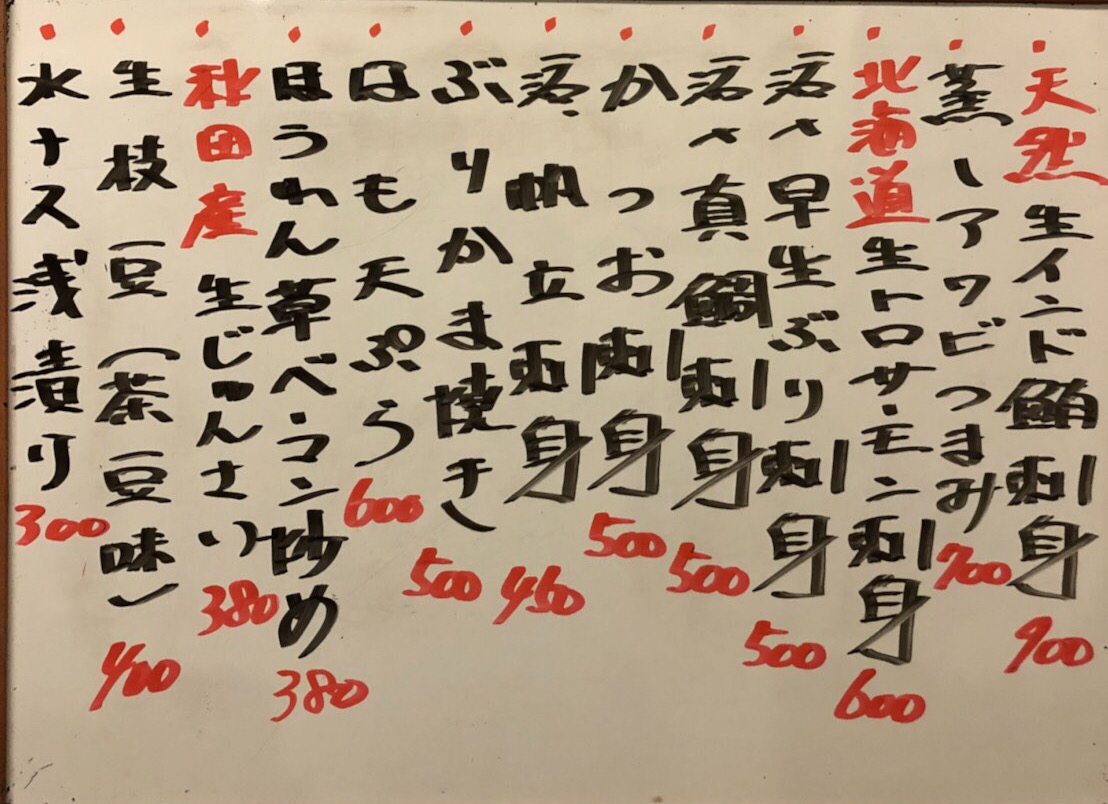 天然生インド鮪刺身 900
蒸しアワビつまみ 700
北海道生トロサーモン刺身 600
活〆早生ぶり刺身 500
活〆真鯛刺身 500
かつお刺身 500
活帆立刺身 450
ぶりかま焼き 500
はも天ぷら 600
ほうれん草ベーコン炒め 380
秋田産生じゅんさい 380
生枝豆(茶豆味) 400
水ナス浅漬り 300